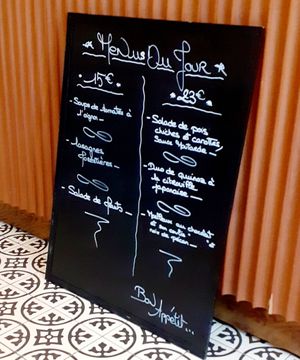 Menus Du Jour
15€
- Soupe de tomates à
l'oignon
- Lasagnes
forestières -
- Salade de fruits -
23€
- Salade de pois
chiches et carottes,
Sauce Moutarde -
- Duo de quinoa à
la citrouille
japonaise -
- Moelleux au chocolat
et son
noix de pécan -
Bon
Appétit...